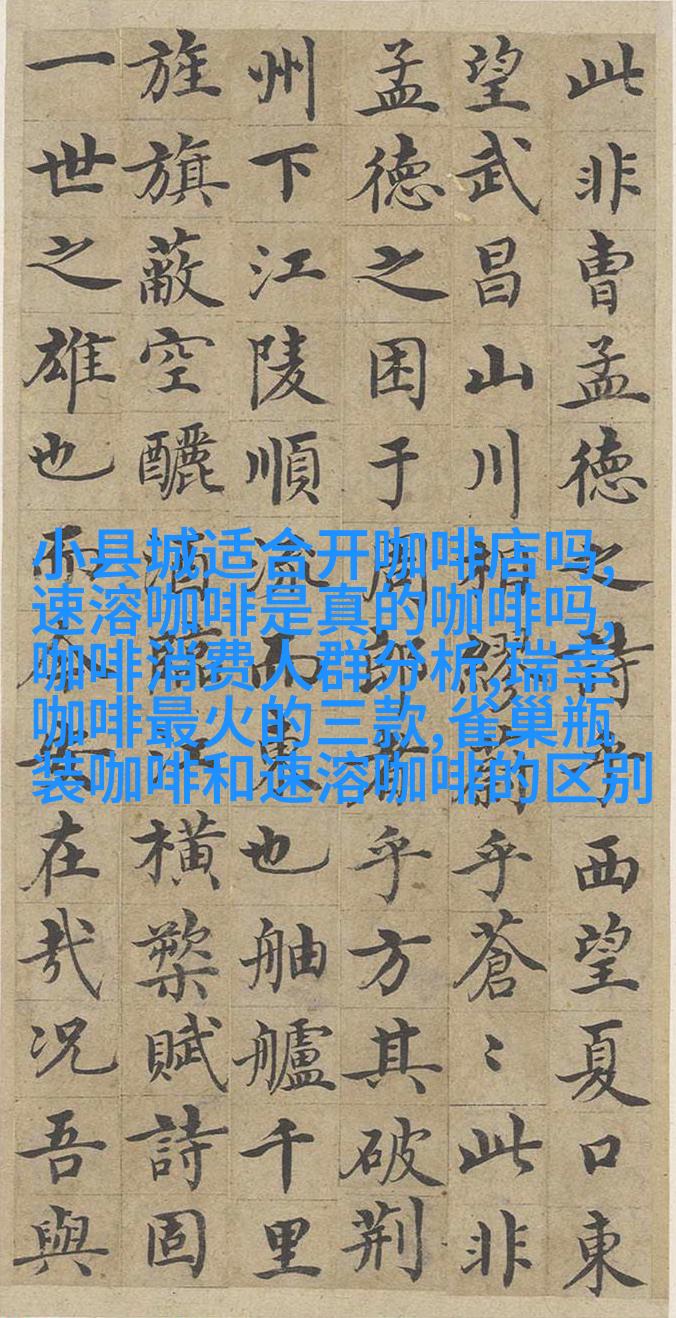 此非曹孟德之詩乎西望夏口東
望武昌山川相繆蔚乎蒼〻此非
孟德之困于周郎者乎方其破荊
州下江陵順流而東也舳艫千里
旌旗蔽空釃酒臨江橫槊賦詩固
一世之雄也而今安在哉況吾與
小县城适合开咖啡店吗,
速溶咖啡是真的咖啡吗,
咖啡消费人群分析,瑞幸
咖啡最火的三款,雀巢瓶
装咖啡和速溶咖啡的区别